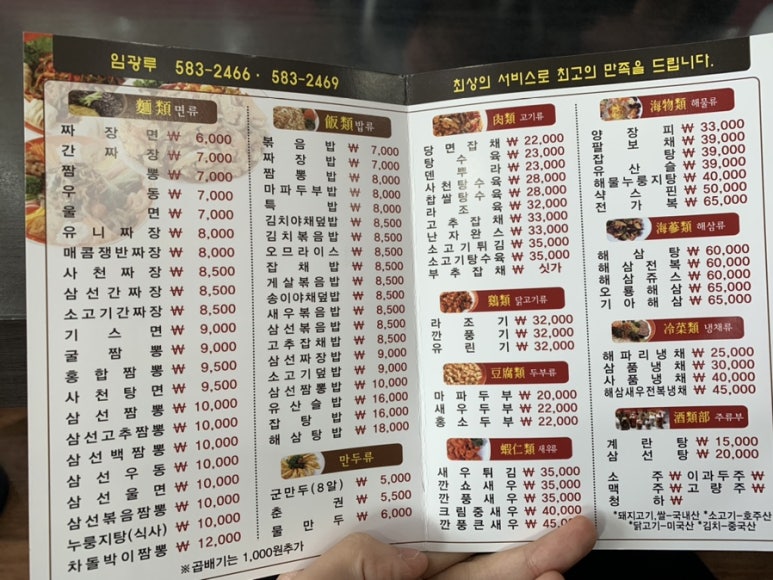 임광루 583-2466 · 583-2469
麵類 면류
짜장면 ₩ 6,000
간짜장 ₩ 7,000
짬뽕 ₩ 7,000
우동 ₩ 7,000
울면 ₩ 7,000
유니짜장 ₩ 8,000
매콤쟁반짜장 ₩ 8,000
사천짜장 ₩ 8,500
삼선간짜장 ₩ 8,500
소고기간짜장 ₩ 8,500
기스면 ₩ 9,000
굴짬뽕 ₩ 9,000
홍합짬뽕 ₩ 9,500
사천탕면 ₩ 9,500
삼선짬뽕 ₩ 10,000
삼선고추짬뽕 ₩ 10,000
삼선백짬뽕 ₩ 10,000
삼선우동 ₩ 10,000
삼선울면 ₩ 10,000
삼선볶음짬뽕 ₩ 10,000
누룽지탕(식사) ₩ 10,000
차돌박이짬뽕 ₩ 12,000
飯類 밥류
볶음밥 ₩ 7,000
짜장밥 ₩ 7,000
짬뽕밥 ₩ 8,000
마파두부밥 ₩ 8,000
특밥 ₩ 8,000
김치야채덮밥 ₩ 8,000
김치볶음밥 ₩ 8,000
오므라이스 ₩ 8,000
잡채밥 ₩ 8,000
게살볶음밥 ₩ 8,500
송이야채덮밥 ₩ 8,500
새우볶음밥 ₩ 8,500
삼선볶음밥 ₩ 8,500
고추잡채밥 ₩ 8,500
삼선짜장밥 ₩ 9,000
소고기덮밥 ₩ 9,000
삼선짬뽕밥 ₩ 10,000
유산슬밥 ₩ 16,000
잡탕밥 ₩ 16,000
해삼탕밥 ₩ 18,000
만두류
군만두(8알) ₩ 5,000
춘권 ₩ 5,500
물만두 ₩ 6,000
※곱배기는 1,000원추가
최상의 서비스로 최고의 만족을 드립니다.
肉類 고기류
당면잡채 ₩ 22,000
탕수육 ₩ 23,000
덴뿌라 ₩ 23,000
사천탕수육 ₩ 28,000
찹쌀탕수육 ₩ 28,000
라조육 ₩ 32,000
고추잡채 ₩ 33,000
난자완스 ₩ 33,000
소고기튀김 ₩ 35,000
소고기탕수육 ₩ 35,000
부추잡채 싯가
鷄類 닭고기류
라조기 ₩ 32,000
깐풍기 ₩ 32,000
유린기 ₩ 32,000
豆腐類 두부류
마파두부 ₩ 20,000
새우두부 ₩ 22,000
홍소두부 ₩ 22,000
蝦仁類 새우류
새우튀김 ₩ 35,000
깐쇼새우 ₩ 35,000
깐풍새우 ₩ 35,000
크림중새우 ₩ 40,000
깐풍큰새우 ₩ 45,000
海物類 해물류
양장피 ₩ 33,000
팔보채 ₩ 39,000
잡탕 ₩ 39,000
유산슬 ₩ 39,000
해물누룽지탕 ₩ 40,000
샥스핀 ₩ 50,000
전가복 ₩ 65,000
海蔘類 해삼류
해삼탕 ₩ 60,000
해삼전복 ₩ 60,000
해삼쥬스 ₩ 60,000
오룡해삼 ₩ 65,000
기아해삼 ₩ 65,000
冷菜類 냉채류
해파리냉채 ₩ 25,000
삼품냉채 ₩ 30,000
사품냉채 ₩ 40,000
해삼새우전복냉채 ₩ 45,000
酒類部 주류부
계란탕 ₩ 15,000
삼선탕 ₩ 20,000
소주 ₩ 이과두주 ₩
맥주 ₩ 고량주 ₩
청하 ₩
*돼지고기,쌀-국내산 *소고기-호주산
*닭고기-미국산 *김치-중국산